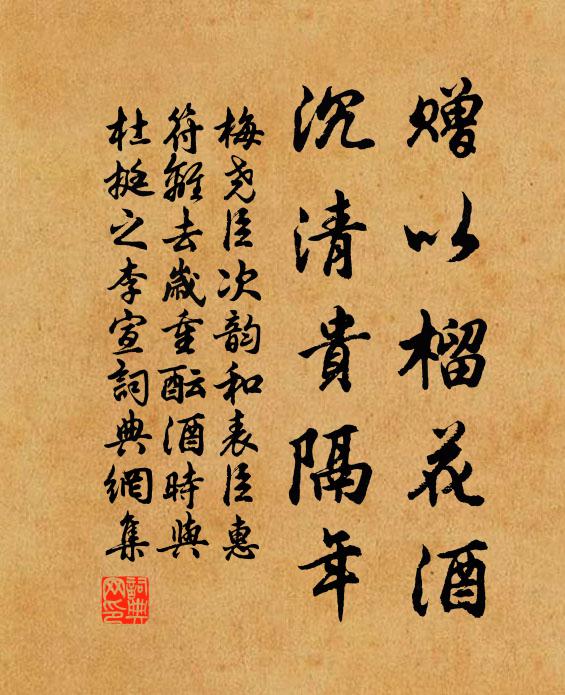 赠以榴花酒
沉清貴隔年
梅尧臣次韵和表臣惠
符離去歲重酝酒時與
杜挺之李宣詞典網集
詞典网印